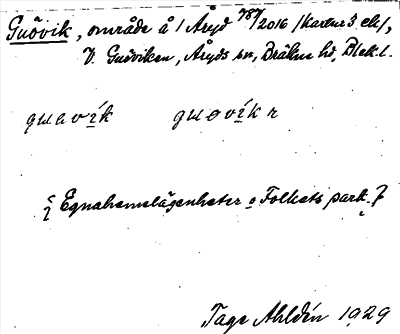 Guövik, område å 1 Åryd 787/2016 (kartur 3 ek),
V. Guöviken, Åryds sn, Bräkne hd, Blek. l.
guøvík guøvík r
{ Egnahemslägenheter o Folkets park. }
Tage Ahldén 1929